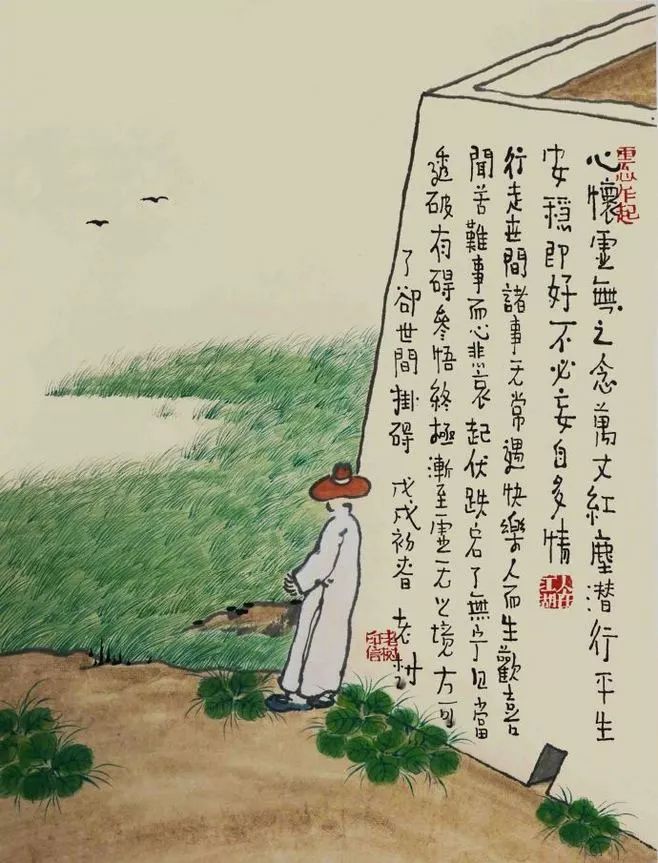 心懷虛無之念萬丈紅塵潜行平生
安穩即好不必妄自多情
行走世間諸事无常遇快樂人而生歡喜
聞苦難事而心悲哀起伏跌宕了無宁日當
透破有碍參悟終極漸至虛无之境方可
了卻世間掛碍 戊戌初春 老樹
人在江湖
老樹印信